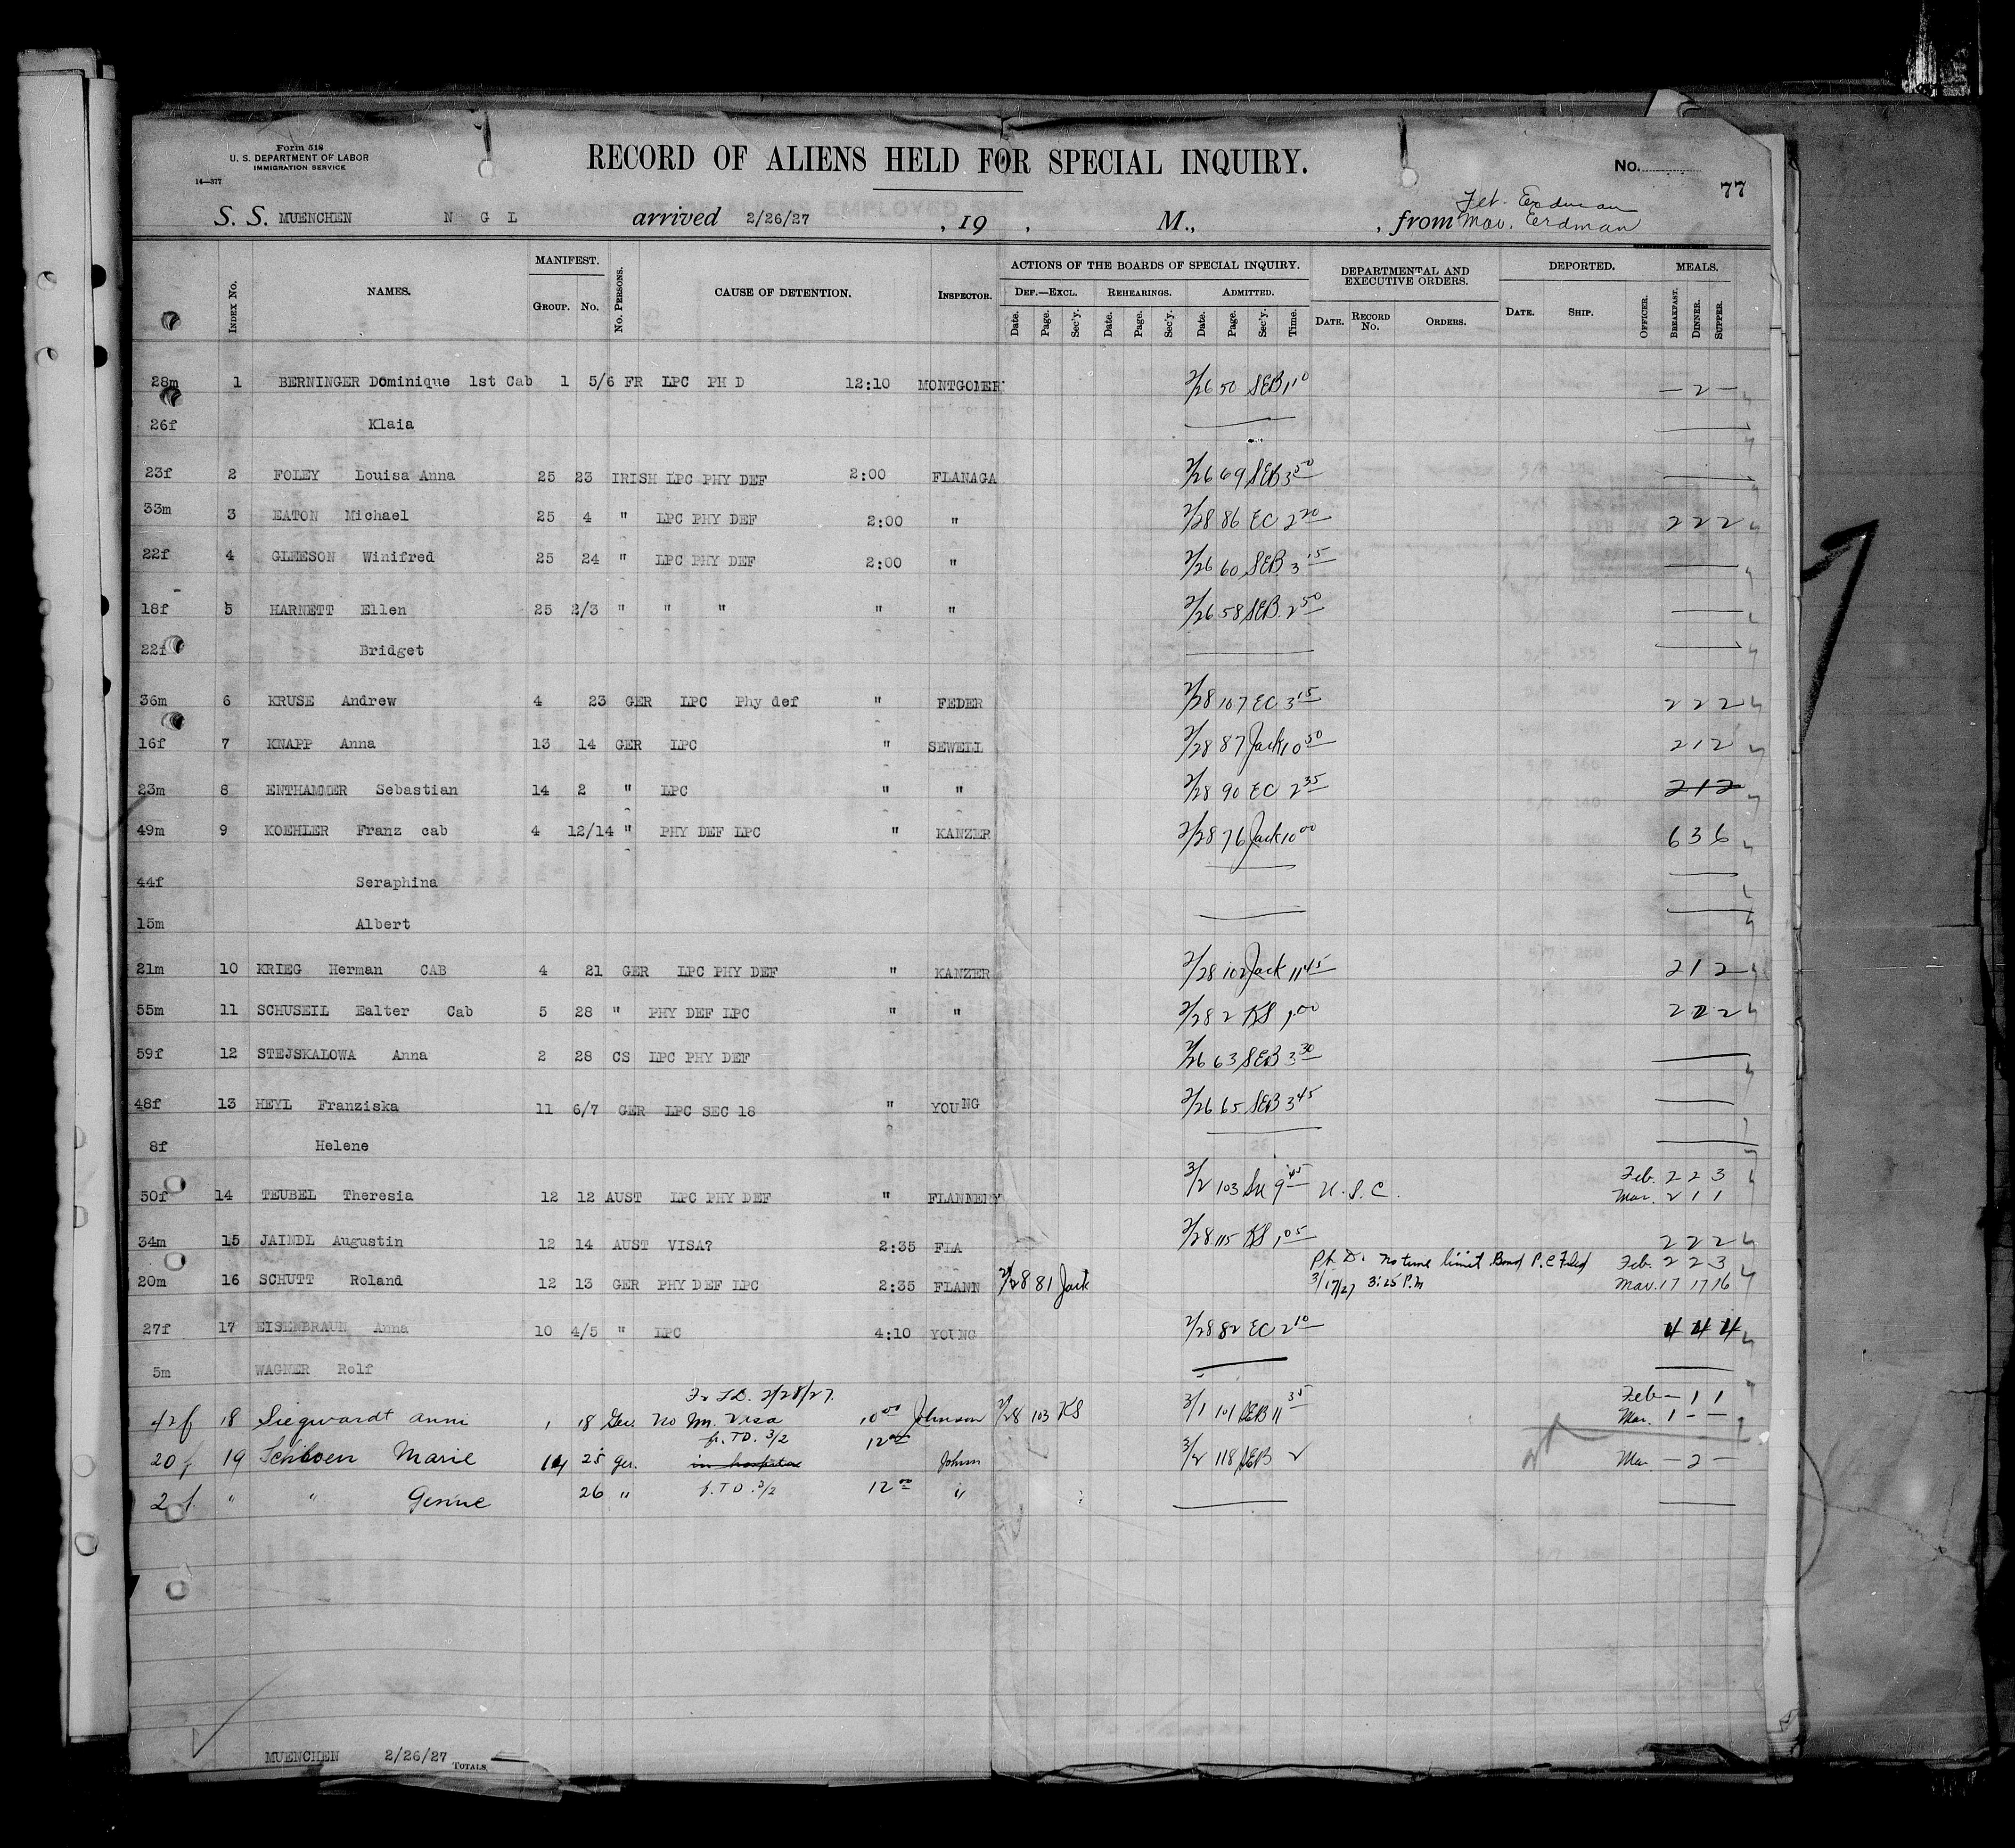 Form 518
U. S. DEPARTMENT OF LABOR
IMMIGRATION SERVICE
14—377
RECORD OF ALIENS HELD FOR SPECIAL INQUIRY.
No.
77
Feb. Erdman
S. S. MUENCHEN N G L arrived 2/26/27 , 19 , M., , from Mar. Erdman
INDEX No. NAMES. MANIFEST. GROUP. No. No. PERSONS. CAUSE OF DETENTION. INSPECTOR. ACTIONS OF THE BOARDS OF SPECIAL INQUIRY. DEPARTMENTAL AND EXECUTIVE ORDERS. DEPORTED. MEALS.
DEF.—EXCL. REHEARINGS. ADMITTED.
Date. Page. Sec'y. Date. Page. Sec'y. Date. Page. Sec'y. Time. DATE. RECORD No. ORDERS. DATE. SHIP. OFFICER. BREAKFAST. DINNER. SUPPER.
28m 1 BERNINGER Dominique 1st Cab 1 5/6 FR LPC PH D 12:10 MONTGOMER 2/26 50 SEB 1 10 — 2 —
26f Klaia
23f 2 FOLEY Louisa Anna 25 23 IRISH LPC PHY DEF 2:00 FLANAGA 2/26 69 SEB 3 50
33m 3 EATON Michael 25 4 " LPC PHY DEF 2:00 " 2/28 86 EC 2 20 2 2 2
22f 4 GLEESON Winifred 25 24 " LPC PHY DEF 2:00 " 2/26 60 SEB 3 15
18f 5 HARNETT Ellen 25 2/3 " " " " " 2/26 58 SEB 2 50
22f Bridget
36m 6 KRUSE Andrew 4 23 GER LPC Phy def " FEDER 2/28 107 EC 3 15 2 2 2
16f 7 KNAPP Anna 13 14 GER LPC " SEWELL 2/28 87 Jack 10 50 2 1 2
23m 8 ENTHAMMER Sebastian 14 2 " LPC " " 2/28 90 EC 2 35 2 1 2
49m 9 KOEHLER Franz cab 4 12/14 " PHY DEF LPC " KANZER 2/28 76 Jack 10 00 6 3 6
44f Seraphina
15m Albert
21m 10 KRIEG Herman CAB 4 21 GER LPC PHY DEF " KANZER 2/28 102 Jack 11 45 2 1 2
55m 11 SCHUSEIL Ealter Cab 5 28 " PHY DEF LPC " " 2/28 2 KS 1 00 2 2 2
59f 12 STEJSKALOWA Anna 2 28 CS LPC PHY DEF 2/26 63 SEB 3 30
48f 13 HEYL Franziska 11 6/7 GER LPC SEC 18 " YOUNG 2/26 65 SEB 3 45
8f Helene
50f 14 TEUBEL Theresia 12 12 AUST LPC PHY DEF " FLANNERY 3/2 103 9 45 U. S. C. Feb. 2 2 3
Mar. 2 1 1
34m 15 JAINDL Augustin 12 14 AUST VISA? 2:35 FLA 2/28 115 KS 1 05 2 2 2
20m 16 SCHUTT Roland 12 13 GER PHY DEF LPC 2:35 FLANN 2/28 81 Jack Ph. D. No time limit Bond P. C Filed Feb. 2 2 3
3/17/27 3:25 P.M Mar. 17 17 16
27f 17 EISENBRAUN Anna 10 4/5 " LPC 4:10 YOUNG 2/28 82 EC 2 10 4 4 4
5m WAGNER Rolf
Fr T.D. 2/28/27.
42f 18 Siegwardt Anni 1 18 Ger. No Im. Visa 10 00 Johnson 2/28 103 KS 3/1 101 SEB 11 35 Feb — 1 1
Mar. 1 — —
fr. TD. 3/2 12 00
20f 19 Schloen Marie 14 25 Ger. in hospital Johnn 3/2 118 SEB 2 Mar — 2 —
2f " " 26 " f. TD. 3/2 12 00 "
MUENCHEN 2/26/27
TOTALS